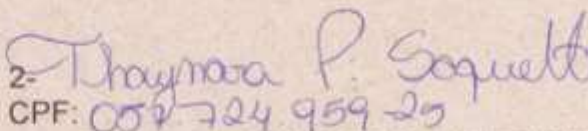 2- Thaynara P. Soquett
CPF: 057 724 959-25